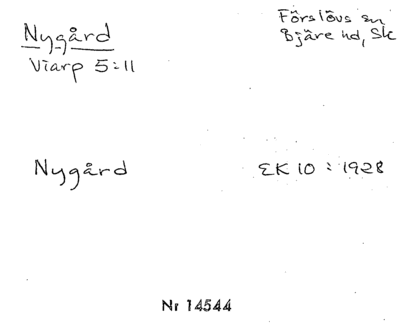 Nygård
Viarp 5:11
Förslövs sn
Bjäre hd, Sk
Nygård
EK 10 : 1928
Nr 14544